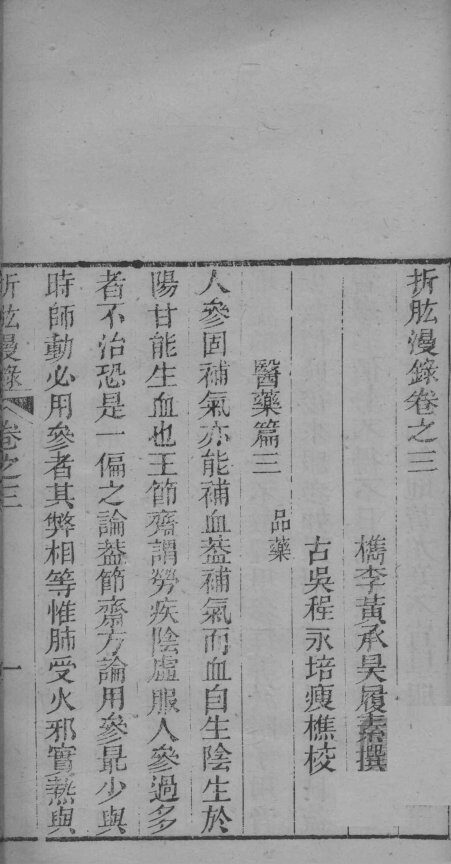 折肱漫錄卷之三
檇李黃承昊履素撰
古吳程永培瘦樵校
醫藥篇三
品藥
人參固補氣亦能補血葢補氣而血自生陰生於
陽甘能生血也王節齋謂勞疾陰虛服人參過多
者不治恐是一偏之論葢節齋方論用參最少與
時師動必用參者其弊相等惟肺受火邪實熱與
折肱漫錄 卷之三 一